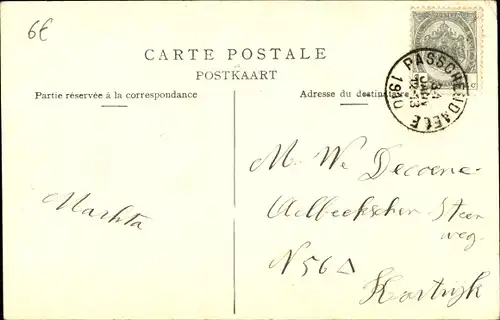 6€
CARTE POSTALE
POSTKAART
Partie réservée à la correspondance
Adresse du destinataire
PASSCHENDAELE
31
JANV
12-13
1910
Martha
M. We Decoene
Aelbeekschen Steen
weg
N 56 A
Kortrijk